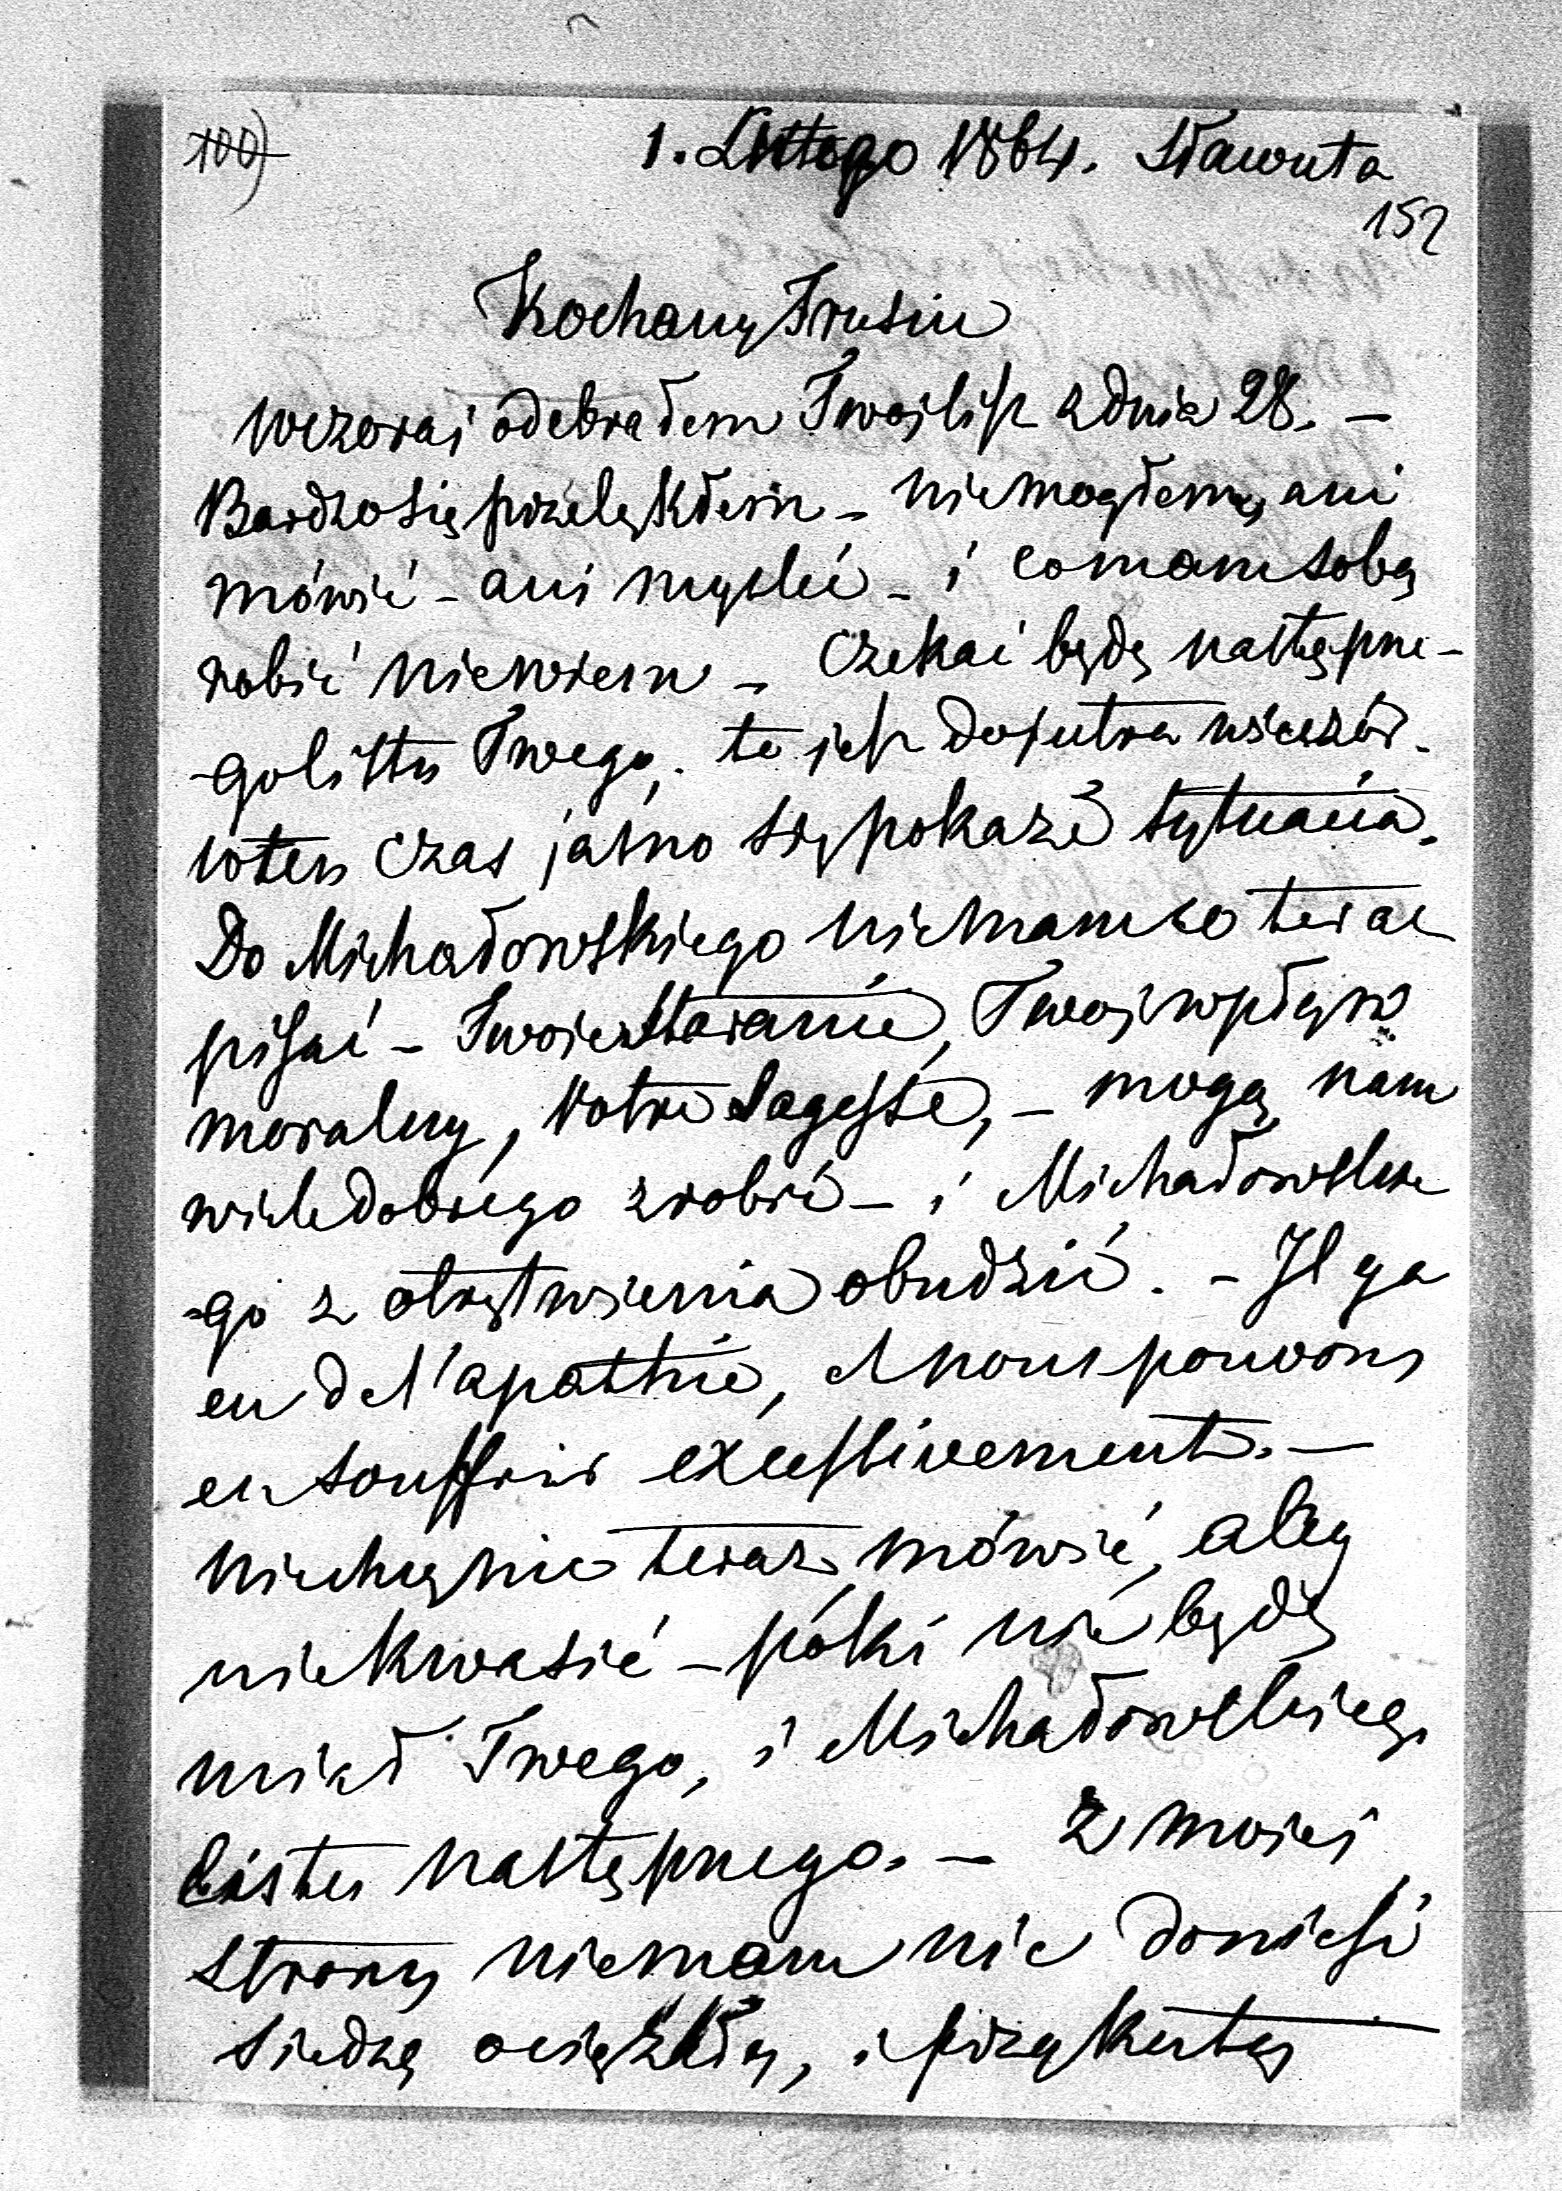 100)
1. Lutego 1864. Sławuta
152
Kochany Frusiu
Wczoraj odebrałem Twoj list z dnia 28. —
Bardzo się przelękłem – nie mogłem, ani
mówić – ani myslić – i co mam sobą
robić nie wiem – czekać będę następne-
-go listu Twego, to jest do jutra wieczór.
wten czas jasno się pokazé sytuacia.
Do Michałowskiego nie mam co teraz
pisać – Twoje staranie, Twoj wpływ
moralny, Votre sagesse, – mogą nam
wiele dobrego zrobić – i Michałowskie
-go z otrętwienia obudzić. – Il y a
eu de l'apathie, et nous pouvons
en souffrir excessivement. —
Nie chcę nic teraz mówić, aby
nie kwasić – póki nie będę
miał Twego, i Michałowskiego
listu następnego. – Z mojej
strony nie mam nic donieść
siedzę ociężały, i przykuty